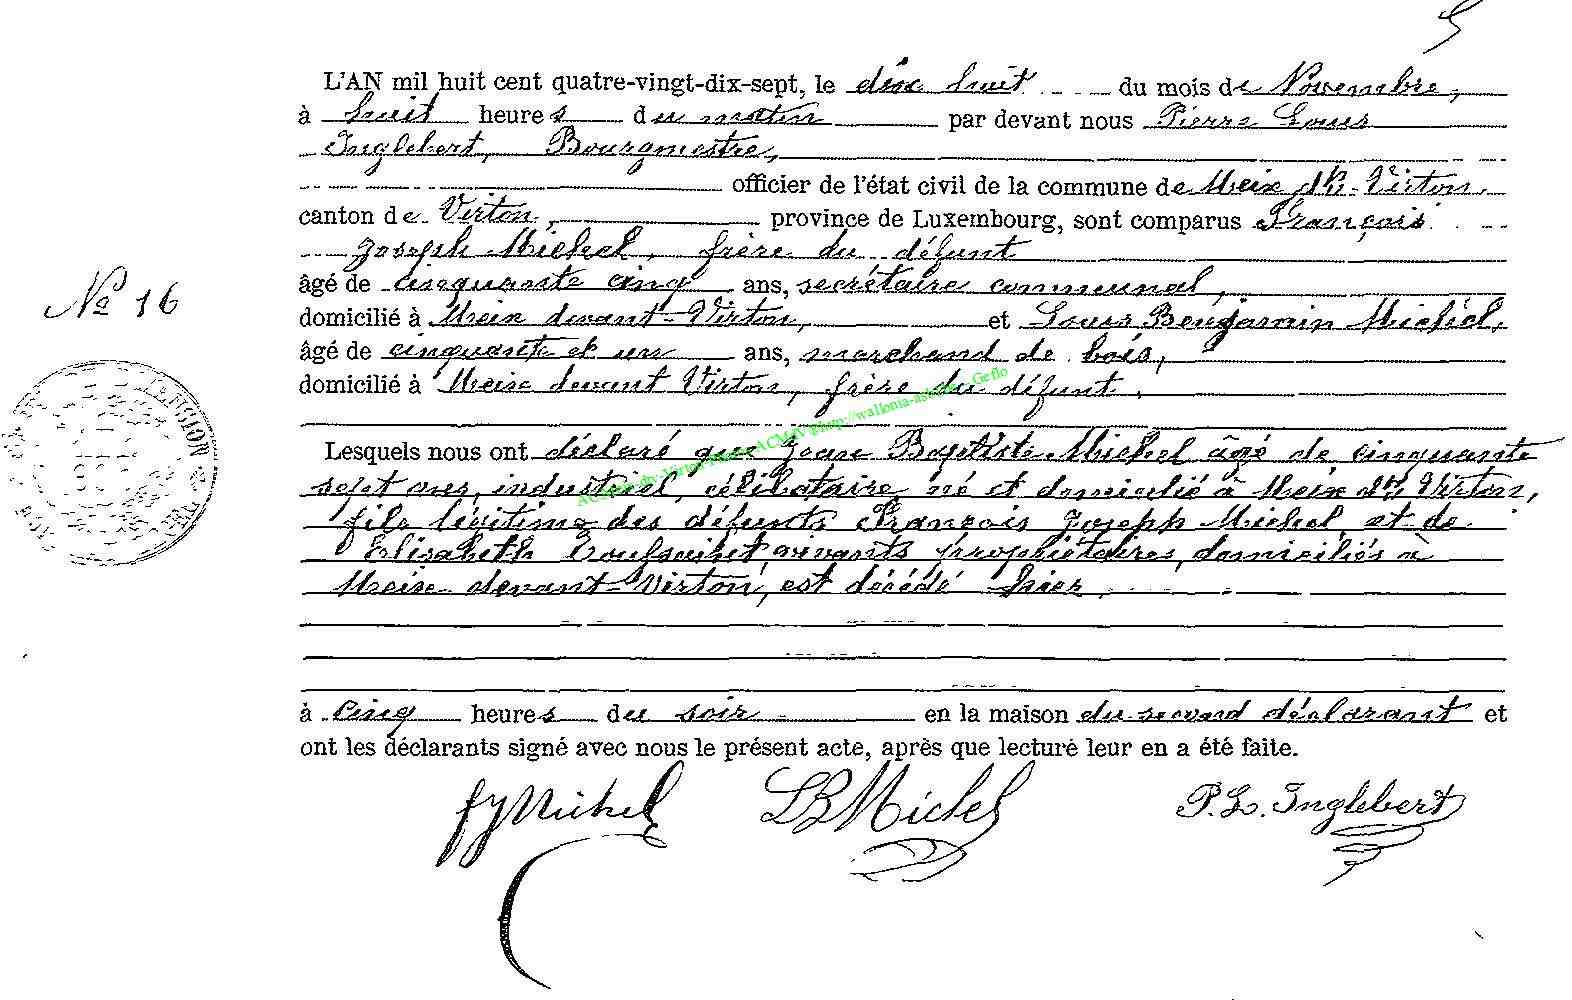 L'AN mil huit cent quatre-vingt-dix-sept, le dix huit du mois de Novembre,
à huit heures du matin par devant nous Pierre Louis
Inglebert, Bourgmestre,
officier de l'état civil de la commune de Meix dt-Virton,
canton de Virton, province de Luxembourg, sont comparus François
Joseph Michel, frère du défunt
âgé de cinquante cinq ans, secrétaire communal,
N° 16
domicilié à Meix devant-Virton, et Louis Benjamin Michel,
âgé de cinquante et un ans, marchand de bois,
domicilié à Meix devant Virton, frère du défunt.
Lesquels nous ont déclaré que Jean Baptiste Michel âgé de cinquante
sept ans, industriel, célibataire né et domicilié à Meix dt Virton,
fils légitime des défunts François Joseph Michel et de
Elisabeth vivants propriétaires, domiciliés à
Meix devant-Virton, est décédé hier
à cinq heures du soir en la maison du second déclarant et
ont les déclarants signé avec nous le présent acte, après que lecture leur en a été faite.
fJMichel LBMichel P.L. Inglebert